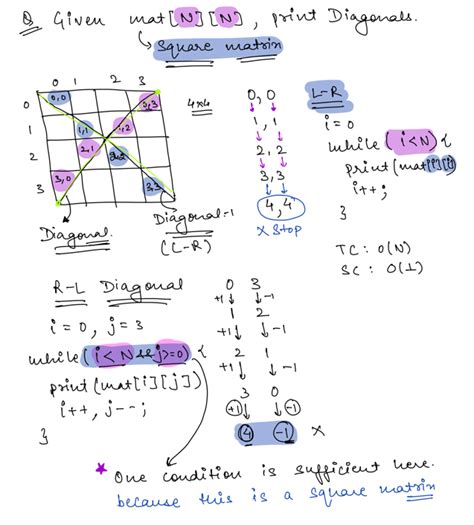 Q Given mat[N][N], print Diagonals.
Square matrix
0 1 2 3
0 0,0 0,3
1 1,1 1,2
2 2,1 2,2
3 3,0 3,3
4x4
Diagonal
Diagonal-1
(L-R)
0,0
1,1
2,2
3,3
4,4
x Stop
L-R
i=0
while (i<N) {
print(mat[i][i])
i++;
}
TC: O(N)
SC: O(1)
R-L Diagonal
i=0, j=3
while (i<N && j>=0) {
print(mat[i][j])
i++, j--;
}
0 3
+1 -1
1 2
+1 -1
2 1
+1 -1
3 0
+1 -1
4 -1 x
★ One condition is sufficient here.
because this is a square matrix